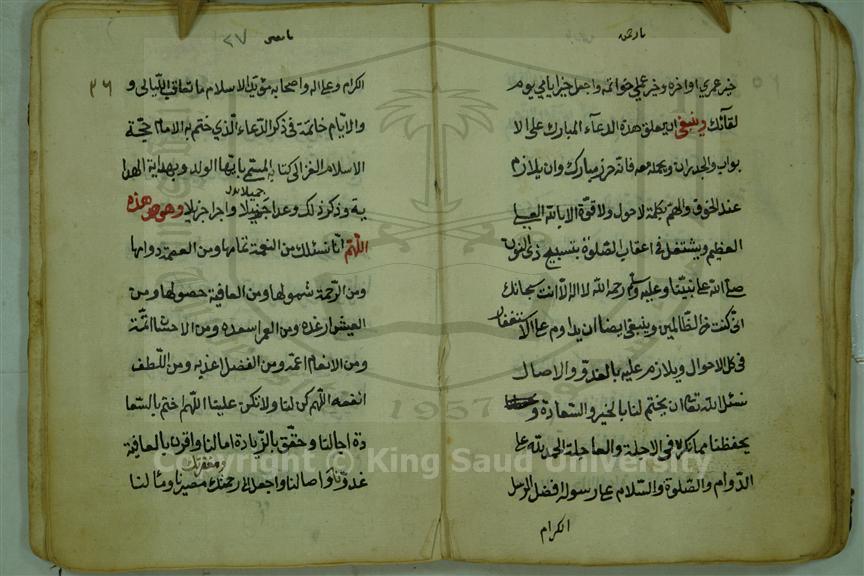 خير عمري اواخره وخير عملي خواتمه واجعل خير ايامي يوم
لقائك وينبغي ان يعلق هذه الدعاء المبارك على الا
بواب والجدران ويحمله معه فانه حرز مبارك وان يلازم
عند الخوف والهم بكلمة لا حول ولا قوة الا بالله العلي
العظيم ويشتغل في اعقاب الصلوة بتسبيح ذي النون
صلى الله على نبينا وعليه وسلم رحمه الله لا اله الا انت سبحانك
اني كنت من الظالمين وينبغي ايضا ان يداوم على الاستغفار
في كل الاحوال ويلازم عليه بالغدو والاصال
نسئل الله تعالى ان يختم لنا بالخير والسعادة و
يحفظنا مما نكره في الاجلة والعاجلة الحمد لله على
الدوام والصلوة والسلام على رسوله افضل الرسل
الكرام
٢٧
٢٦
الكرام وعلى اله واصحابه مؤيد الاسلام ما تعاقب الليالي و
والايام خاتمة في ذكر الدعاء الذي ختم به الامام حجة
الاسلام الغزالي كتابه المسمى بايها الولد وبهداية الهدا
ية وذكر ذلك وعدا جميلا واجرا جزيلا وهو هذه
اللهم انا نسئلك من النعمة تمامها ومن العصمة دوامها
ومن الرحمة شمولها ومن العافية حصولها ومن
العيش ارغده ومن العمر اسعده ومن الاحسان اتمه
ومن الانعام اعمه ومن الفضل اعذبه ومن اللطف
انفعه اللهم كن لنا ولا تكن علينا اللهم اختم بالسعا
دة اجالنا وحقق بالزيادة امالنا واقرن بالعافية
غدونا واصالنا واجعل الى رحمتك ومغفرتك مصيرنا ومالنا
1957
Copyright © King Saud University